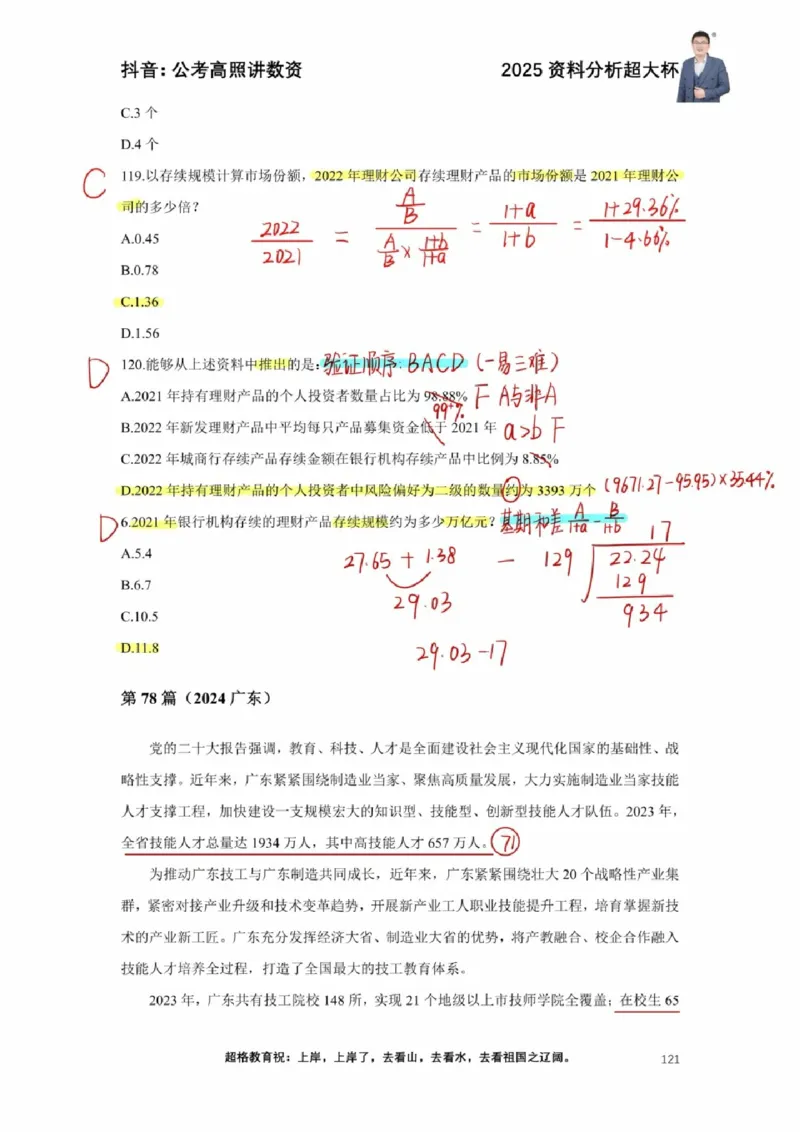 抖音：公考高照讲数资 2025 资料分析超大杯
C.3 个
D.4 个
C 119.以存续规模计算市场份额，2022 年理财公司存续理财产品的市场份额是 2021 年理财公
司的多少倍？
2022/2021 = (A/B)/(A/B×(1+b)/(1+a)) = (1+a)/(1+b) = (1+29.36%)/(1-4.66%)
A.0.45
B.0.78
C.1.36
D.1.56
D 120.能够从上述资料中推出的是：验证顺序：BACD（一易三难）
A.2021 年持有理财产品的个人投资者数量占比为 98.88% F A与非A
99+%
B.2022 年新发理财产品中平均每只产品募集资金低于 2021 年 a>b F
C.2022 年城商行存续产品存续金额在银行机构存续产品中比例为 8.85%
D.2022 年持有理财产品的个人投资者中风险偏好为二级的数量约为 3393 万个 (9671.27-95.95)×35.44%
D 6.2021 年银行机构存续的理财产品存续规模约为多少万亿元？基期和差 A/(1+a) - B/(1+b)
A.5.4
27.65 + 1.38 — 129 22.24 17
B.6.7
29.03 129
C.10.5
934
D.11.8
29.03-17
第 78 篇（2024 广东）
党的二十大报告强调，教育、科技、人才是全面建设社会主义现代化国家的基础性、战
略性支撑。近年来，广东紧紧围绕制造业当家、聚焦高质量发展，大力实施制造业当家技能
人才支撑工程，加快建设一支规模宏大的知识型、技能型、创新型技能人才队伍。2023 年，
全省技能人才总量达 1934 万人，其中高技能人才 657 万人。71
为推动广东技工与广东制造共同成长，近年来，广东紧紧围绕壮大 20 个战略性产业集
群，紧密对接产业升级和技术变革趋势，开展新产业工人职业技能提升工程，培育掌握新技
术的产业新工匠。广东充分发挥经济大省、制造业大省的优势，将产教融合、校企合作融入
技能人才培养全过程，打造了全国最大的技工教育体系。
2023 年，广东共有技工院校 148 所，实现 21 个地级以上市技师学院全覆盖；在校生 65
超格教育祝：上岸，上岸了，去看山，去看水，去看祖国之辽阔。
121